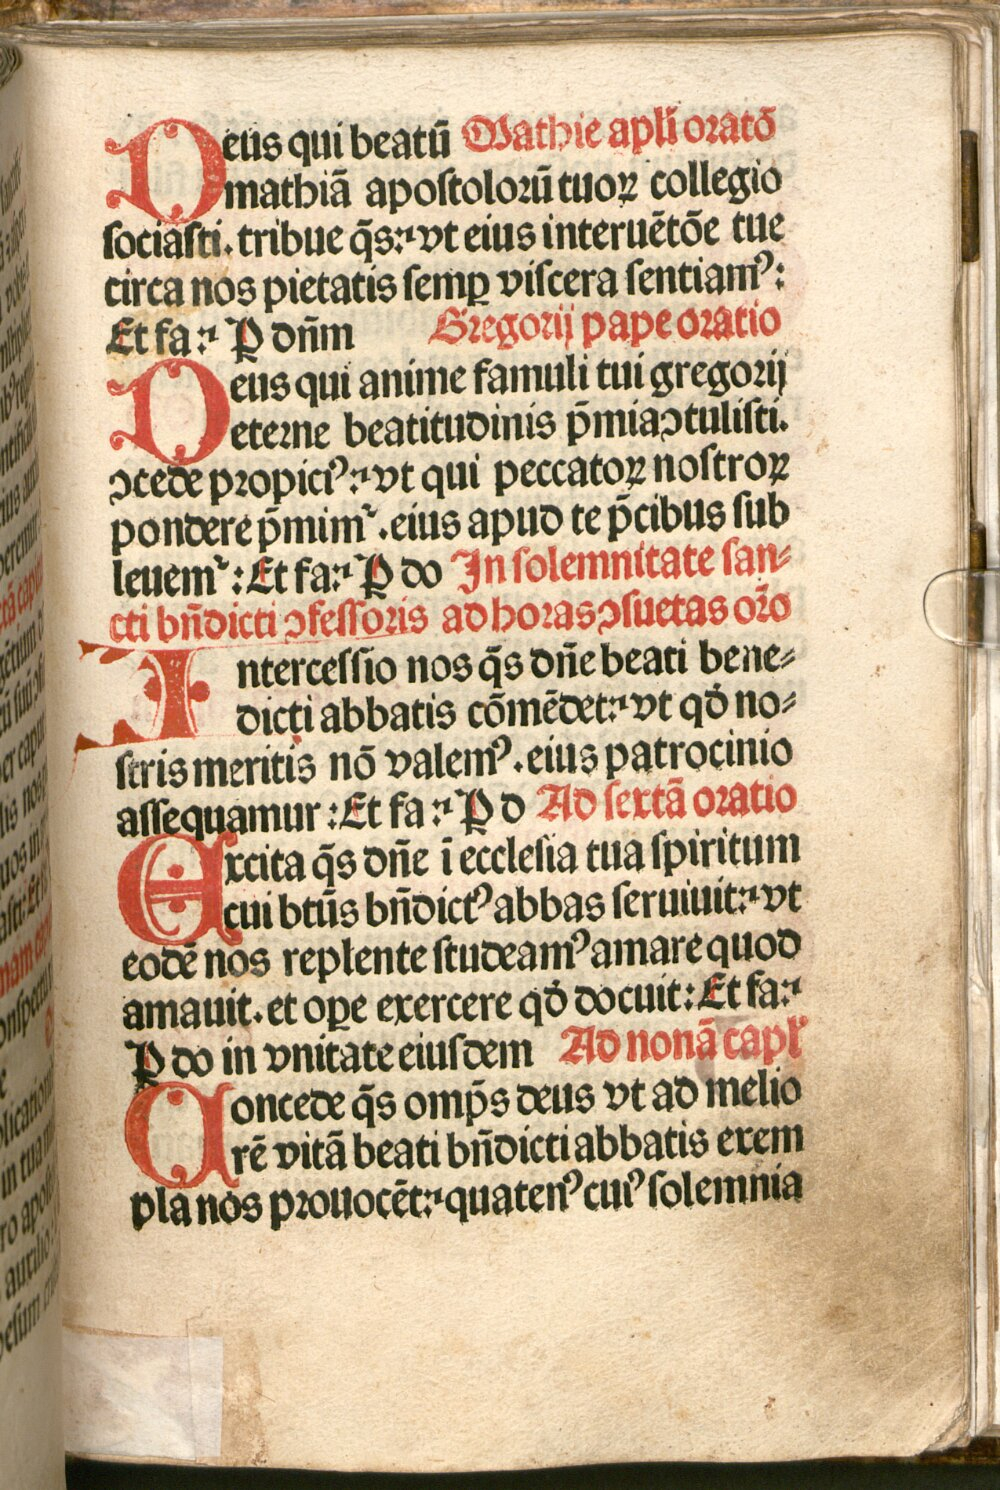 Deus qui beatū Mathie apl'i oratō
mathiā apostolorū tuoꝝ collegio
sociasti. tribue q̄s: vt eius interuētōe tue
circa nos pietatis semꝑ viscera sentiamꝰ:
Et fa: P donm̄
Gregorij pape oratio
Deus qui anime famuli tui gregorij
eterne beatitudinis p̄mia ↄtulisti.
ↄcede propiciꝰ: vt qui peccatoꝝ nostroꝝ
pondere p̄mimꝰ. eius apud te p̄cibus sub
leuemꝰ: Et fa: P do In solemnitate san-
cti bn̄dicti ↄfessoris ad horas ↄsuetas orō
Intercessio nos q̄s dn̄e beati bene-
dicti abbatis cōmēdet: vt qd̄ no-
stris meritis nō valemꝰ. eius patrocinio
assequamur: Et fa: P d Ad sextā oratio
Excita q̄s dn̄e ī ecclesia tua spiritum
cui bt̄us bn̄dictꝰ abbas seruiuit: vt
eodē nos replente studeamꝰ amare quod
amauit. et oꝑe exercere qd̄ docuit: Et fa:
P do in vnitate eiusdem Ad nonā capl'
Concede q̄s omp̄s deus vt ad melio
rē vitā beati bn̄dicti abbatis exem
pla nos prouocēt: quatenꝰ cuiꝰ solemnia